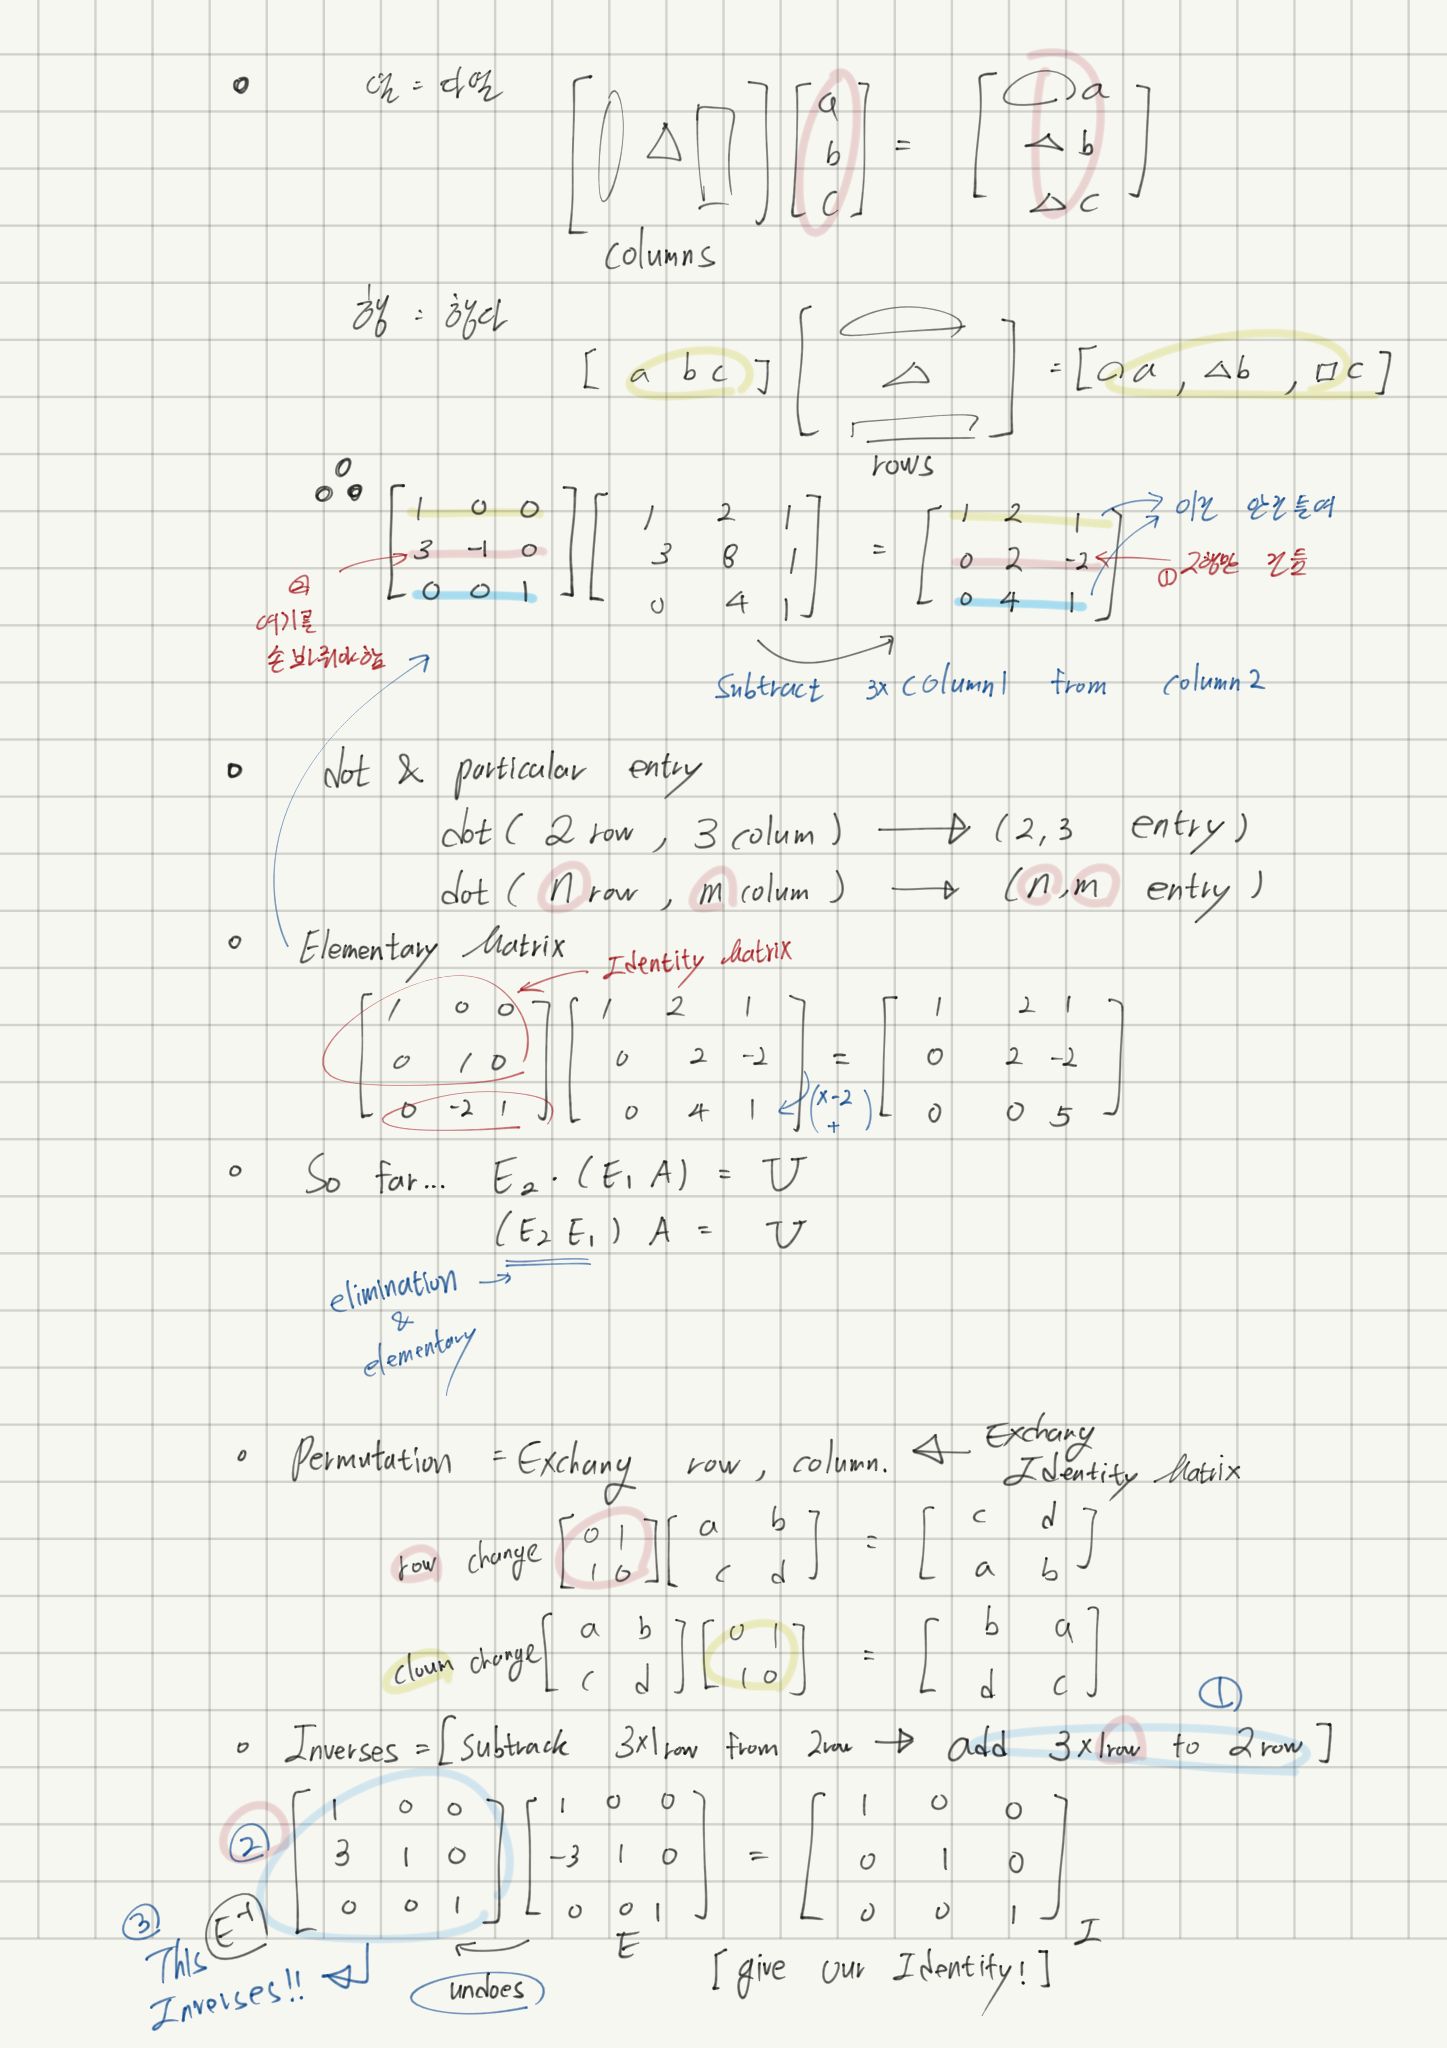 열 = 다열
[ ○ △ □ ] [ a b c ] = [ ○a △b △c ]
columns
행 = 행다
[ a b c ] [ ○ △ □ ] = [ ○a , △b , □c ]
rows
[ 1 0 0 ] [ 1 2 1 ] = [ 1 2 1 ] → 이건 안건들여
[ 3 -1 0 ] [ 3 8 1 ] [ 0 2 -2 ] ← ① 2행만 건듦
[ 0 0 1 ] [ 0 4 1 ] [ 0 4 1 ]
②
여기를
손봐줘야함
Subtract 3x column1 from column2
dot & particular entry
dot ( 2 row , 3 colum ) → (2,3 entry)
dot ( n row , m colum ) → (n,m entry)
Elementary Matrix
Identity Matrix
[ 1 0 0 ] [ 1 2 1 ] = [ 1 2 1 ]
[ 0 1 0 ] [ 0 2 -2 ] [ 0 2 -2 ]
[ 0 -2 1 ] [ 0 4 1 ] (x-2 +) [ 0 0 5 ]
So far... E₂·(E₁ A) = U
(E₂ E₁) A = U
elimination →
&
elementary
Permutation = Exchang row, column. ← Exchang
Identity Matrix
row change [ 0 1 ] [ a b ] = [ c d ]
[ 1 0 ] [ c d ] [ a b ]
cloum change [ a b ] [ 0 1 ] = [ b a ]
[ c d ] [ 1 0 ] [ d c ]
①
Inverses = [ subtrack 3x1row from 2row → add 3x1row to 2row ]
② [ 1 0 0 ] [ 1 0 0 ] = [ 1 0 0 ]
[ 3 1 0 ] [ -3 1 0 ] [ 0 1 0 ]
[ 0 0 1 ] [ 0 0 1 ] [ 0 0 1 ] I
③ E⁻¹ E
This
Inverses!!
undoes
[ give our Identity! ]